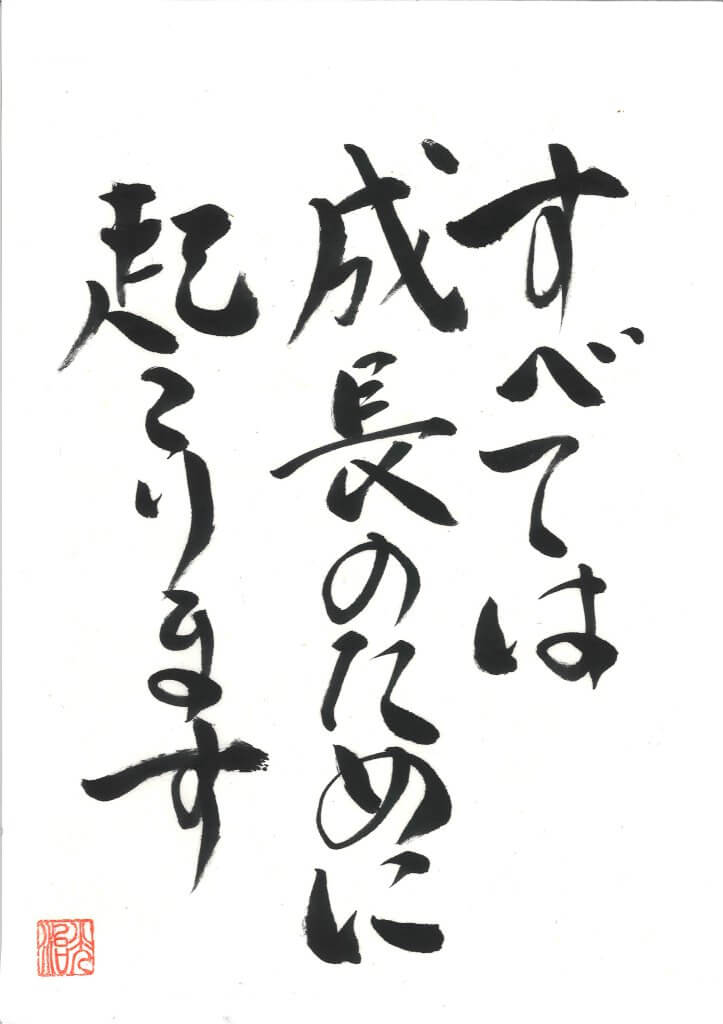 すべては
成長のために
起こります